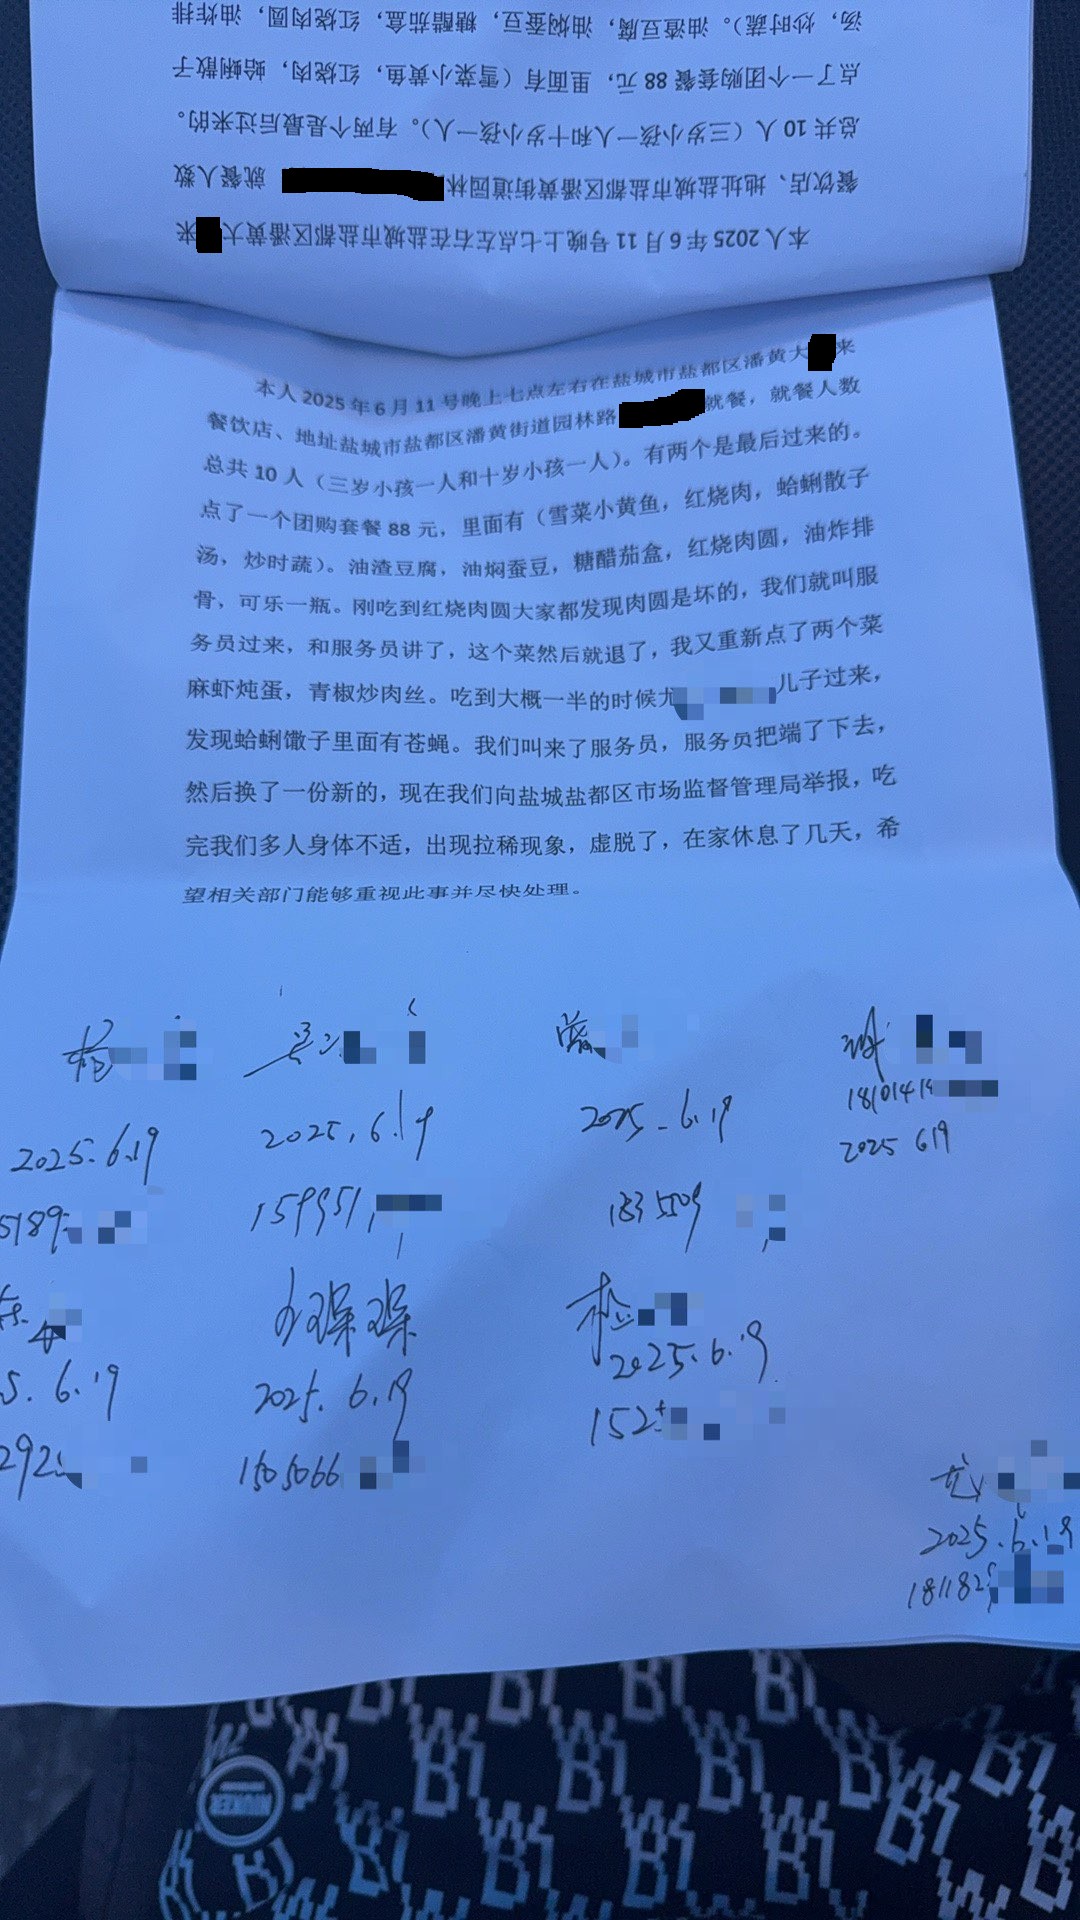 汤，炒时蔬）。油渣豆腐，油焖蚕豆，糖醋茄盒，红烧肉圆，油炸排
点了一个团购套餐 88 元，里面有（雪菜小黄鱼，红烧肉，蛤蜊散子
总共 10 人（三岁小孩一人和十岁小孩一人）。有两个是最后过来的。
餐饮店、地址盐城市盐都区潘黄街道园林 就餐人数
本人 2025 年 6 月 11 号晚上七点左右在盐城市盐都区潘黄大 来
本人 2025 年 6 月 11 号晚上七点左右在盐城市盐都区潘黄大 来
餐饮店、地址盐城市盐都区潘黄街道园林路 就餐，就餐人数
总共 10 人（三岁小孩一人和十岁小孩一人）。有两个是最后过来的。
点了一个团购套餐 88 元，里面有（雪菜小黄鱼，红烧肉，蛤蜊散子
汤，炒时蔬）。油渣豆腐，油焖蚕豆，糖醋茄盒，红烧肉圆，油炸排
骨，可乐一瓶。刚吃到红烧肉圆大家都发现肉圆是坏的，我们就叫服
务员过来，和服务员讲了，这个菜然后就退了，我又重新点了两个菜
麻虾炖蛋，青椒炒肉丝。吃到大概一半的时候尤 儿子过来，
发现蛤蜊馓子里面有苍蝇。我们叫来了服务员，服务员把端了下去，
然后换了一份新的，现在我们向盐城盐都区市场监督管理局举报，吃
完我们多人身体不适，出现拉稀现象，虚脱了，在家休息了几天，希
望相关部门能够重视此事并尽快处理。
2025.6.19 2025.6.19 2025.6.19 1810141
2025 619
5189 159951 1835509
5.6.19 2025.6.19 2025.6.19
292 1505066 152
尤
2025.6.19
181182